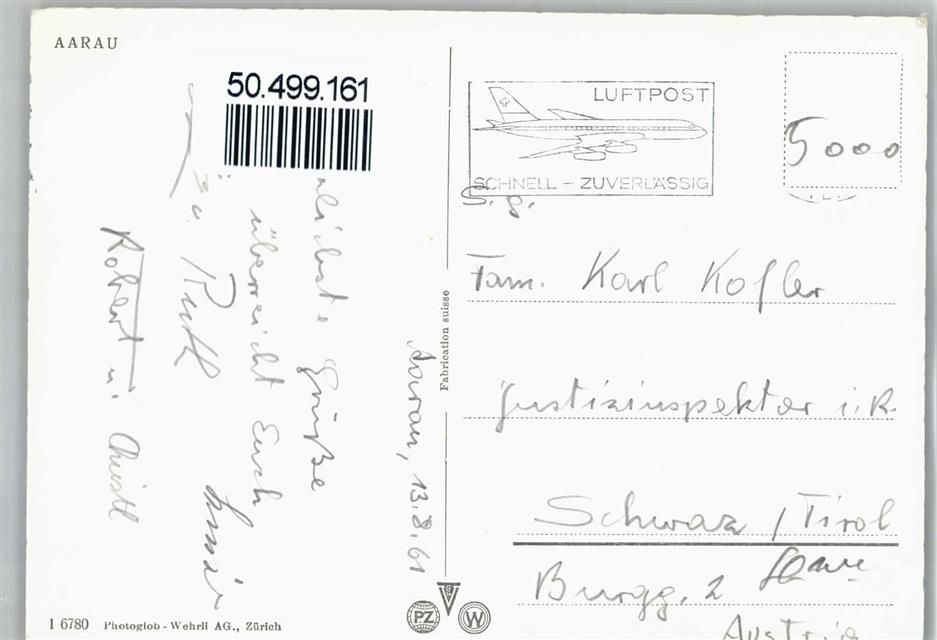 AARAU
50.499.161
LUFTPOST
SCHNELL – ZUVERLÄSSIG
5000
S. g.
Fam. Karl Kofler
Justizinspektor i. R.
Schwaz / Tirol
Burgg. 2
Austria
Aarau, 13.8.61
Grüße
überreicht Euch
Ruth
Robert u. Christl
Fabrication suisse
PZ W
1 6780 Photoglob - Wehrli AG., Zürich